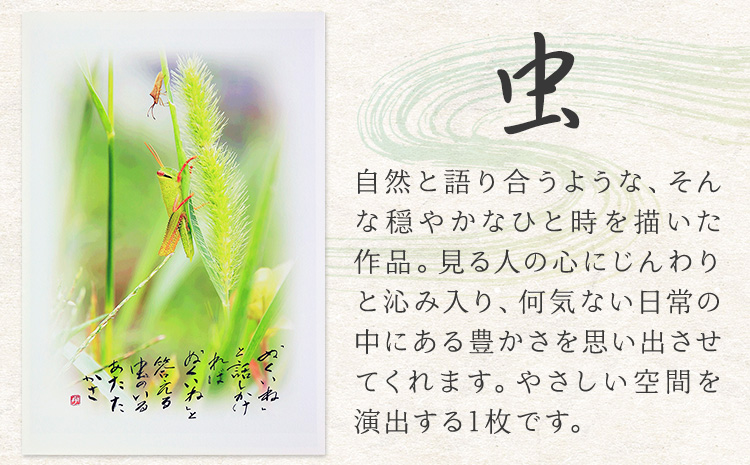 虫
自然と語り合うような、そん
な穏やかなひと時を描いた
作品。見る人の心にじんわり
と沁み入り、何気ない日常の
中にある豊かさを思い出させ
てくれます。やさしい空間を
演出する1枚です。
ぬくいね」
と話しかけ
れば
ぬくいね」と
答える
虫のいる
あたた
かさ